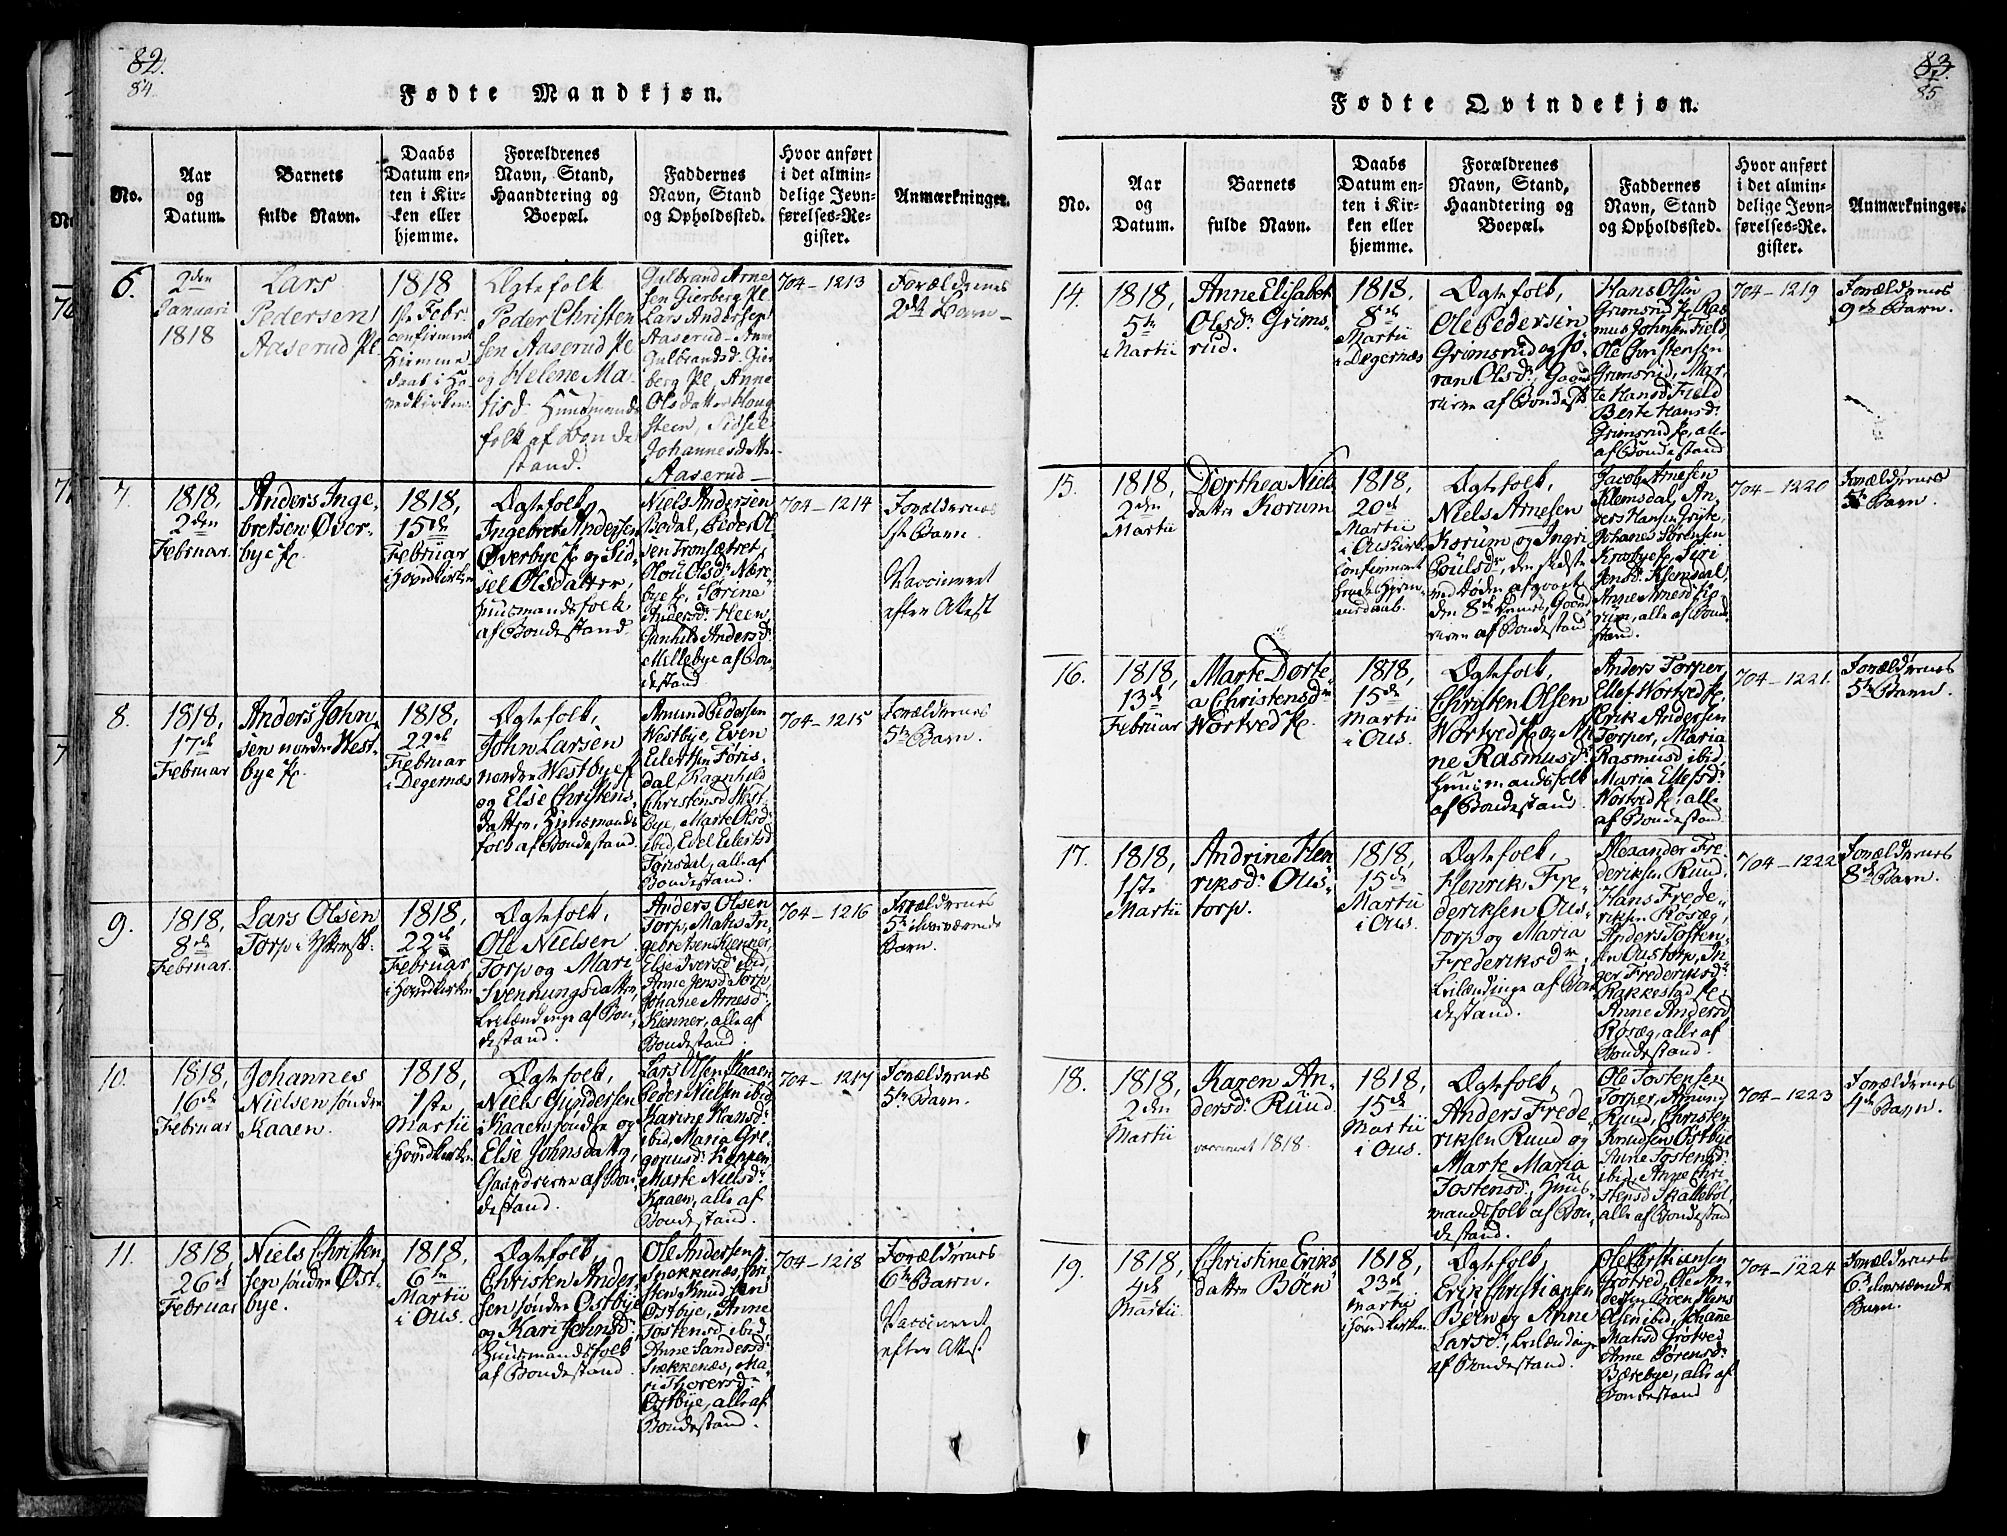 82.
84.
Fødte Mandkjøn.
No.
Aar
og
Datum.
Barnets
fulde Navn.
Daabs
Datum en-
ten i Kir-
ken eller
hjemme.
Forældrenes
Navn, Stand,
Haandtering og
Boepæl.
Faddernes
Navn, Stand
og Opholdssted.
Hvor anført
i det almin-
delige Jevn-
førelses-Re-
gister.
Anmærkninger.
6.
2den
Januari
1818
Lars
Pedersen
Aaserud Pl
1818
1ste Febr
confirmeret
Hjemme
daab i Ho-
vedkirken
Ægtefolk
Peder Christen
sen Aaserud Pl
og Helene Ma-
tisd: Huusmands
folk af Bonde
stand.
Gulbrand Arne
sen Gierberg Pl.
Lars Andersen
Aaserud - Anne
Gulbrandsd. Gier
berg Pl, Anne
Olsdatter Houg
steen, Sidsel
Johannesdatter
Aaserud
704-1213
Forældrenes
2det Barn
7.
1818,
2den
Februar.
Anders Inge-
bretsen Øver-
bye Pl.
1818,
15de
Februar
i Hovedkirken
Ægtefolk,
Ingebret Andersen
Øverbye Pl og Sid
sel Olsdatter,
Huusmandsfolk
af Bondestand.
Niels Andersen
Bodal, Peder Ol
sen Tronsætret,
Olou Olsdr Nære
bye Pl, Sørine
Andersdr Heen,
Gunhild Andersdr
Millebye af Bon
destand
704-1214
Forældrenes
1ste Barn
Vaccineret
efter Attest
8.
1818,
17de
Februar
Anders John
sen nordre West
bye Pl.
1818,
22de
Februar
i Degernæs
Ægtefolk,
John Larsen
nordre Westbye Pl
og Else Christens
datter, Huusmands
folk af Bondestand.
Amund Pedersen
Westbye, Even
Eilertsen Føris
dal, Ragnhild
Christensd West
bye, Marte Olsdr
ibid, Edel Eilertsd
Førisdal, alle af
Bondestand.
704-1215
Forældrenes
5te Barn.
9.
1818,
8de
Februar.
Lars Olsen
Torp i
1818,
22de
Februar
i Hovedkirken
Ægtefolk,
Ole Nielsen
Torp og Mari
Svennungsdatter,
Leilændinge af Bon
destand.
Anders Olsen
Torp, Matis In
gebretsen Kienner,
Else Iversd ibid,
Anne Jensd Torp,
Johane Arnesdr
Kienner, alle af
Bondestand.
704-1216
Forældrenes
5te
Barn.
10.
1818,
16de
Februar
Johannes
Nielsen søndre
Kaaen.
1818,
1ste
Martii
i Hovedkirken
Ægtefolk,
Niels Gundersen
Kaaen søndre og
Else Johnsdatter,
Gaardbrugere af Bon
destand.
Lars Olsen Kaaen
Peder Nielsen ibid
Karine Hansdr
ibid, Maria Gre
goriusdr Koppen,
Marte Nielsdr
Kaaen, alle af
Bondestand.
704-1217
Forældrenes
5te Barn.
11.
1818,
26de
Februar
Niels Christen
sen søndre Øst-
bye.
1818,
6te
Martii
i Ous.
Ægtefolk,
Christen Ander
sen søndre Østbye
og Kari Johnsdr
Huusmandsfolk
af Bondestand.
Ole Andersen
Snekkenæs, Chri
sten Knudsen
Østbye, Anne
Tostensd ibid,
Anne Sandersdr
Snekkenæs, Ma
ri Thoresdr
Østbye, alle af
Bondestand.
704-1218
Forældrenes
6te Barn.
Vaccineret
efter Attest
83.
85
Fødte Qvindekjøn.
No.
Aar
og
Datum.
Barnets
fulde Navn.
Daabs
Datum en-
ten i Kir-
ken eller
hjemme.
Forældrenes
Navn, Stand,
Haandtering og
Boepæl.
Faddernes
Navn, Stand
og Opholdssted.
Hvor anført
i det almin-
delige Jevn-
førelses-Re-
gister.
Anmærkninger.
14.
1818,
5te
Martii
Anne Elisabet
Olsdr Grims-
rud.
1818.
8de
Martii
i Degernæs
Ægtefolk,
Ole Pedersen
Grimsrud og Jø-
ran Olsdr,
af Bondest
Hans Olsen
Grimsrud Pl, Ras
mus Johnsen Field
Ole Christensen
Grimsrud, Mar
te Hansd Field
Berte Hansdr
Grimsrud Pl, alle
af Bondestand
704-1219
Forældrenes
9de Barn.
15.
1818,
2den
Martii
Dorthea Niels
datter Korum
1818,
20de
Martii
i Ous Kirke
confirmeret
Hjem
medaab.
Ægtefolk,
Niels Arnesen
Korum og Ingri
Poulsdr,
ved Døden afgaaet
den 8de
af Bondestand
Jacob Arnesen
Klemsdal, An
ders Hansen
Johanes Sørensen
Krosbye Pl, Siri
Jensdr Klemsdal,
Anne
alle af Bonde
stand.
704-1220
Forældrenes
5te Barn.
16.
1818,
13de
Februar
Marte Dorte
a Christensdr
Wortved Pl.
1818,
15de
Martii
i Ous.
Ægtefolk,
Christen Olsen
Wortved Pl og An
ne Rasmusdr
Huusmandsfolk
af Bondestand.
Anders Torper,
Ellef Wortved Pl,
Erik Andersen
Torper, Maria
Rasmusd ibid,
Maria Ellefsdr
Wortved Pl, alle
af Bondestand.
704-1221.
Forældrenes
5te Barn.
17.
1818,
1ste
Martii
Andrine Hen
riksdr Ous-
torp.
1818,
15de
Martii
i Ous.
Ægtefolk,
Henrik Fre
deriksen Ous
torp og Maria
Frederiksdr,
Leilændinge af Bon
destand.
Alexander Fre
deriksen Ruud,
Hans Frede
riksen Rosæg,
Anders Tosten
sen Oustorp, In
ger Frederiksdr
Rakkestad Pl,
Anne Andersd
Rosæg, alle af
Bondestand.
704-1222
Forældrenes
8de Barn.
18.
1818,
2den
Martii
Karen An
dersdr Ruud
vaccineret 1818.
1818,
15de
Martii
i Ous.
Ægtefolk,
Anders Frede
riksen Ruud og
Marte Maria
Tostensdr, Huus
mandsfolk af Bon
destand.
Ole Tostensen
Torper, Amund
Ruud, Christen
Knudsen Østbye
Anne Tostensdr
ibid, Anne Chri
stensd Skallebøl
alle af Bondestand
704-1223
Forældrenes
4de Barn.
19.
1818,
4de
Martii.
Christine Eriks
datter Bøen
1818,
23de
Martii
i Hovedkirken
Ægtefolk,
Erik Christiansen
Bøen og Anne
Larsdr, Leilændinge
af Bondestand.
Ole Christiansen
Grøtved, Ole An
dersen Bøen, Hans
Olsen ibid, Johanne
Matisd Grøtved
Anne Sørensdr
Bærebye, alle af
Bondestand
704-1224
Forældrenes
6te
Barn.